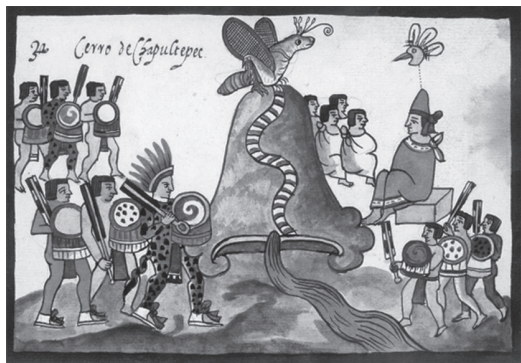 Cerro de Chapultepec